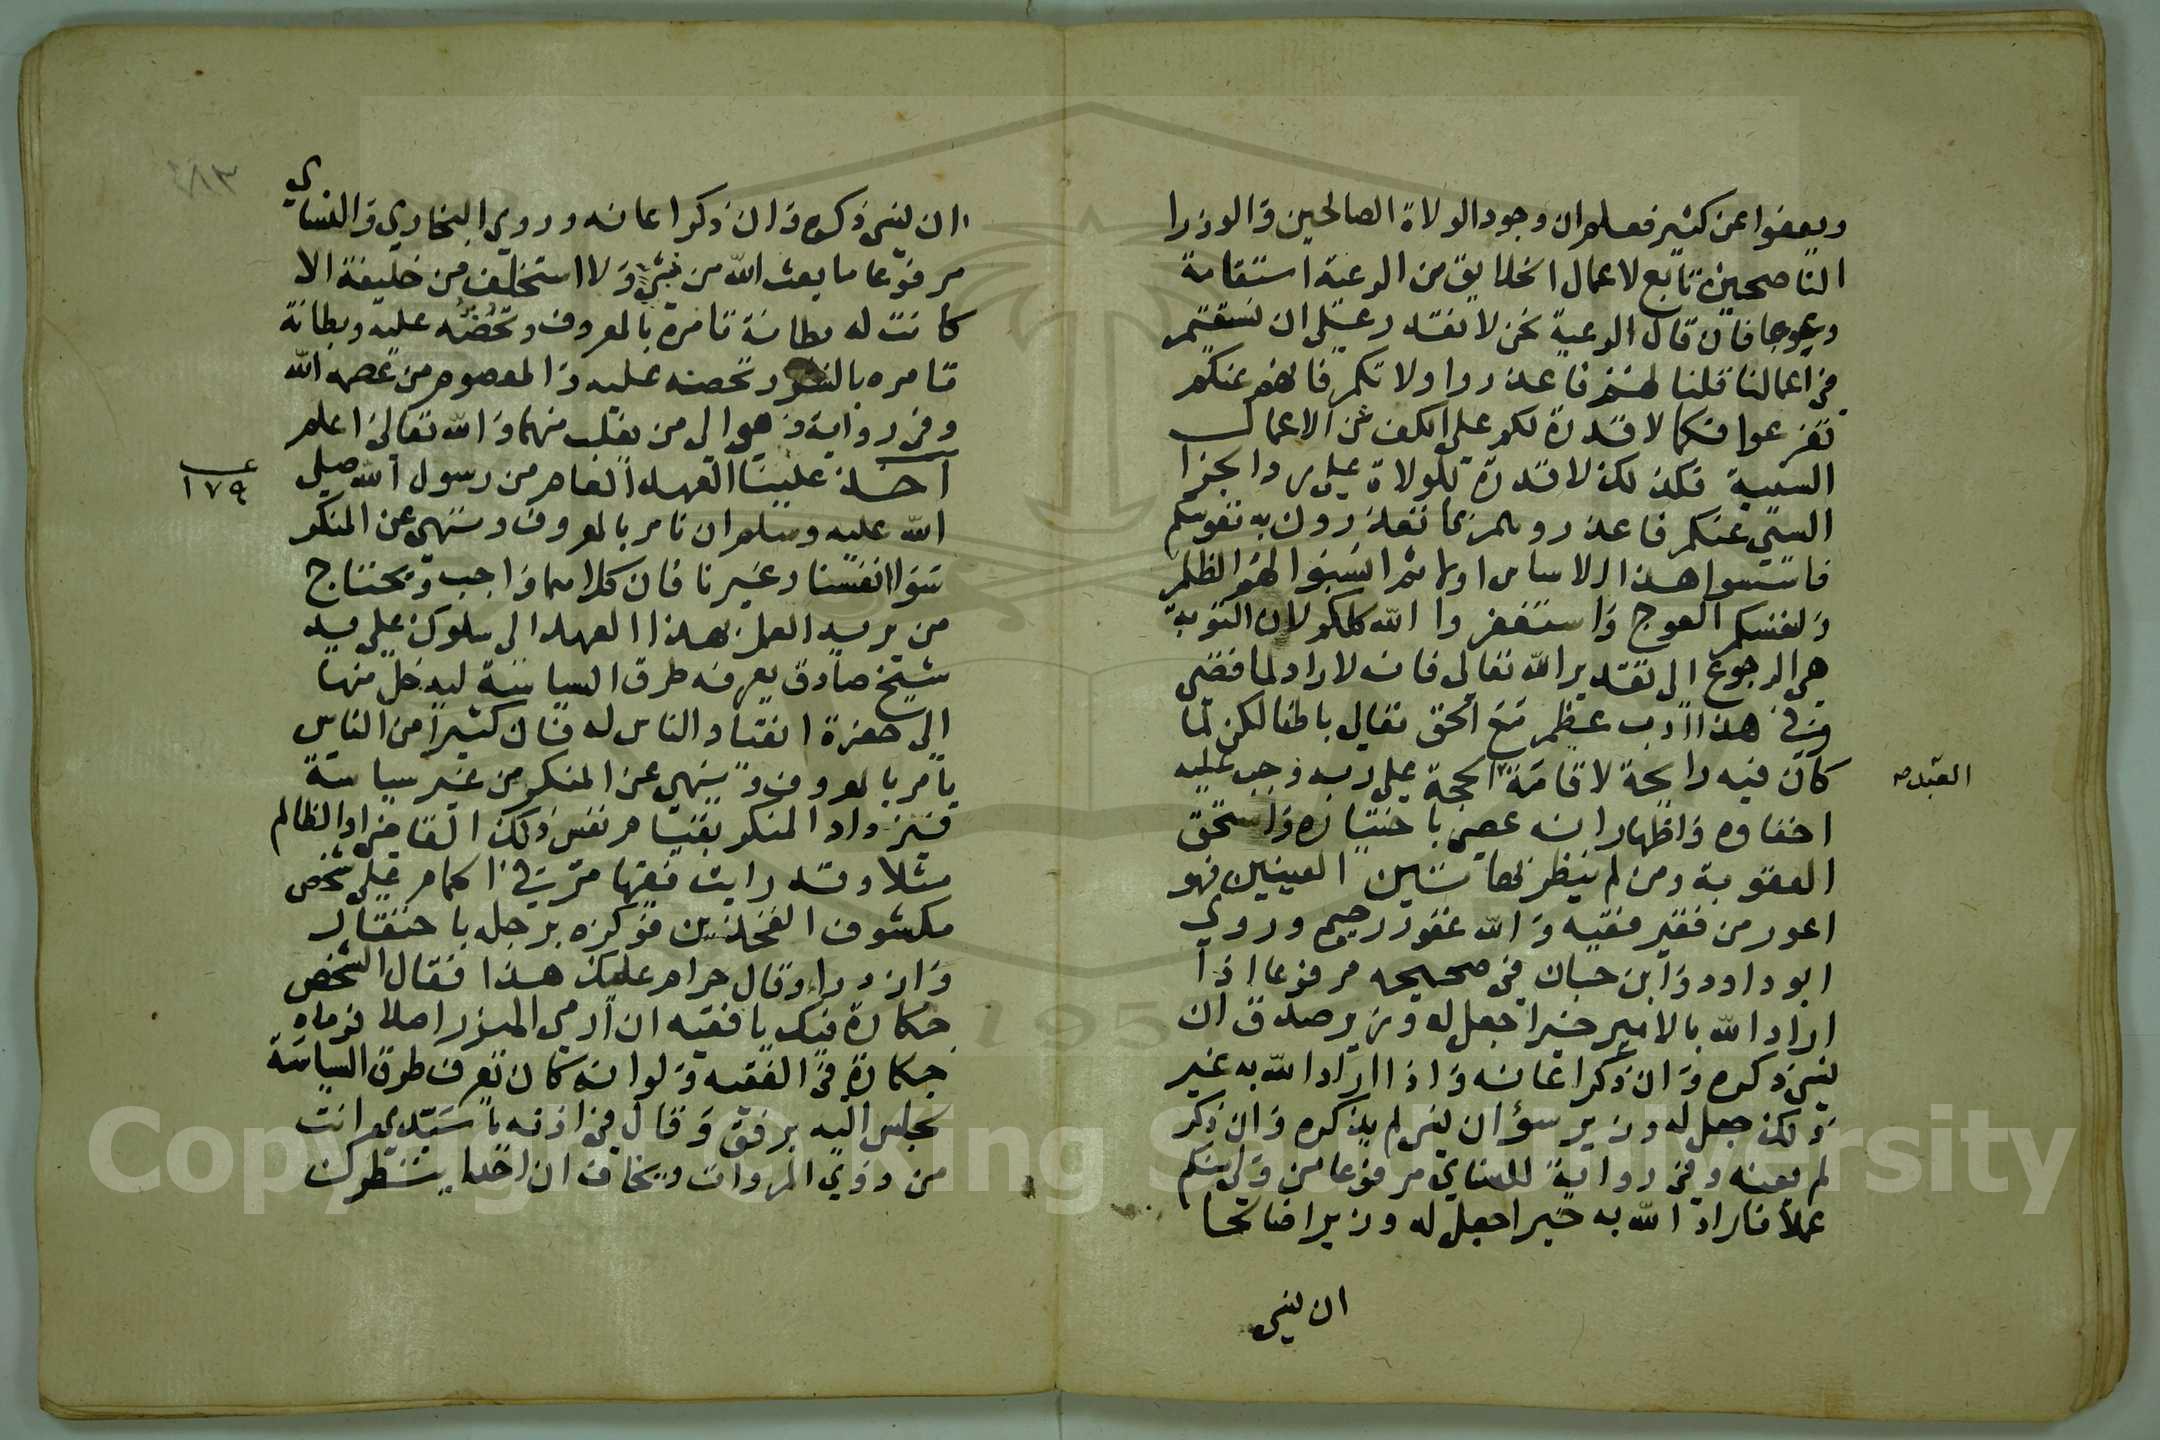 ويعفوا عن كثير فعلم ان وجود الولاة الصالحين والوزرا
الناصحين تابع لاعمال الخلايق من الرعية استقامة
وعوجا فان قال الرعية نحن لا نقدر على ان نستقيم
في اعمالنا قلنا لهم فاعذروا ولاتكم فانهم عنكم
تفرعوا فكما لا قدرة لكم على الكف عن الاعمال
السيية فكذلك لا قدرة للولاة على رد الجزا
السيى عنكم فاعذروهم بما تعذرون به نفوسكم
فاسسوا هذا الاساس اولا ثم انسبوا لهم الظلم
ولنفسكم العوج واستغفروا الله كلكم لان التوبة
هي الرجوع الى تقدير الله تعالى فانه لا راد لما قضى
وفي هذا ادب عظيم مع الحق تعالى باطنا لكن لما
كان فيه رايحة لاقامة الحجة على ربه وجب عليه
العبد صح
اخفاوه واظهار انه عصى باختياره واستحق
العقوبة ومن لم ينظر بهاتين العينين فهو
اعور من فقير وفقيه والله غفور رحيم وروى
ابو داود وابن حبان في صحيحه مرفوعا اذا
اراد الله بالامير خيرا جعل له وزير صدق ان
نسي ذكره وان ذكر اعانه واذا اراد الله به غير
ذلك جعل له وزير سوء ان نسي لم يذكره وان ذكر
لم يعنه وفي رواية للنساي مرفوعا من ولي منكم
عملا فاراد الله به خيرا جعل له وزيرا صالحا
ان نسي
ان نسي ذكره وان ذكر اعانه وروى البخاري والنساي
مرفوعا ما بعث الله من نبي ولا استخلف من خليفة الا
كانت له بطانة تامره بالمعروف وتحضه عليه وبطانة
تامره بالشر وتحضه عليه والمعصوم من عصم الله
وفي رواية وهو الى من يغلب منهما والله تعالى اعلم
اخذ علينا العهد العام من رسول الله صلى
١٧٩
الله عليه وسلم ان نامر بالمعروف وننهى عن المنكر
سوا انفسنا وغيرنا فان كلاهما واجب ويحتاج
من يريد العمل بهذا العهد الى سلوك على يد
شيخ صادق يعرفه طرق السياسة ليدخل منها
الى حضرة انقياد الناس له فان كثيرا من الناس
يامر بالمعروف وينهى عن المنكر من غير سياسة
فيزداد المنكر بقيام نفس ذلك القاضي او الظالم
مثلا وقد رايت فقيها مر في الحمام على شخص
مكشوف الفخذين فوكزه برجله باحتقار
وازدراء وقال حرام عليك هذا فقال الشخص
جكارة فيك يا فقيه ان ارمي الميزر اصلا فرماه
جكارة في الفقيه ولو انه كان يعرف طرق السياسة
لجلس اليه برفق وقال في اذنه يا سيدي انت
من ذوي المروات ويخاف ان احدا ينظرك